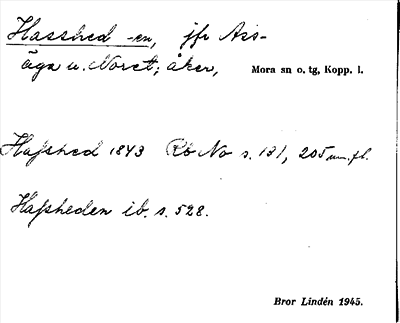 Hasshed -en, jfr Ass-
äga u. Noret; åker, Mora sn o. tg, Kopp. l.
Hafshed 1843 Rb No s. 131, 205 m.fl.
Hafsheden ib. s. 528.
Bror Lindén 1945.